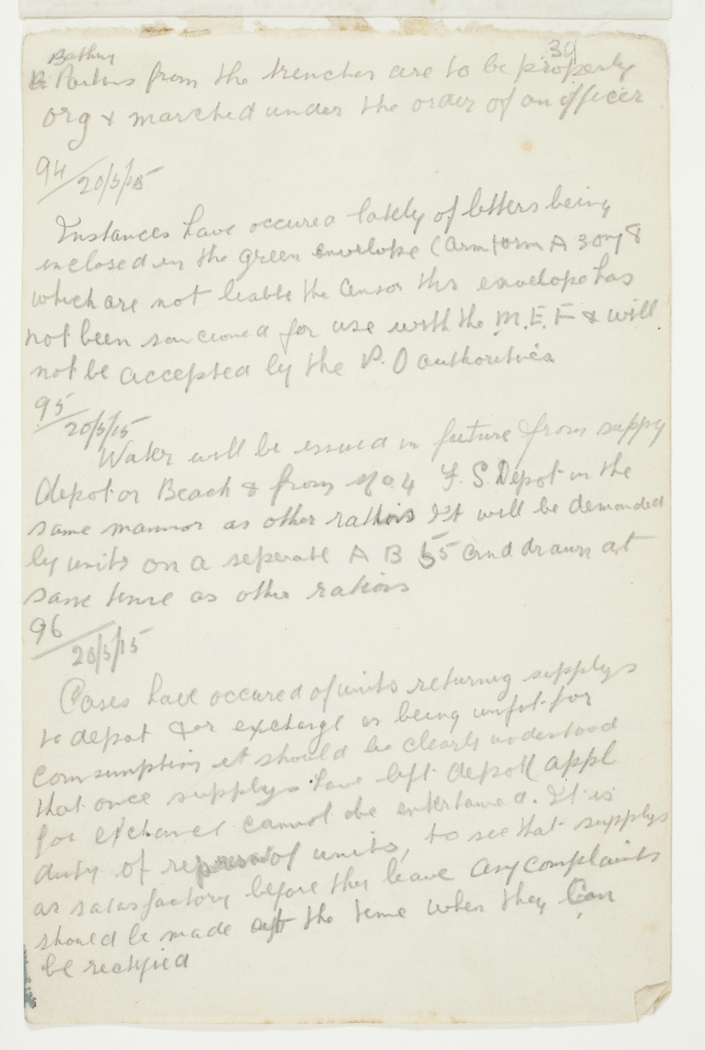 34
Bathing
B Parties from the trenches are to be properly
org & marched under the order of an officer
94/20/5/15
Instances have occured lately of letters being
inclosed in the green envelope (Arm form A 3
which are not liable the censor this envelope has
not been sancioned for use with the M.E.F & will
not be accepted by the P.O authorities
95/20/5/15
Water will be issued in future from supply
depot or Beach & from No. 4 F.S. Depot in the
same mannor as other rations It will be demanded
by units on a seperate A B 55 and drawn at
same time as other rations
96/20/5/15
Cases have occured of units returning supplys
to depot for exchange as being unfit for
comsumption it should be clearly understood
that once supplys have left depot appl
for exchange cannot be entertained. It is
duty of of units, to see that supplys
as satasfactory before they leave Any complaints
should be made at the time when they Can
be rectified